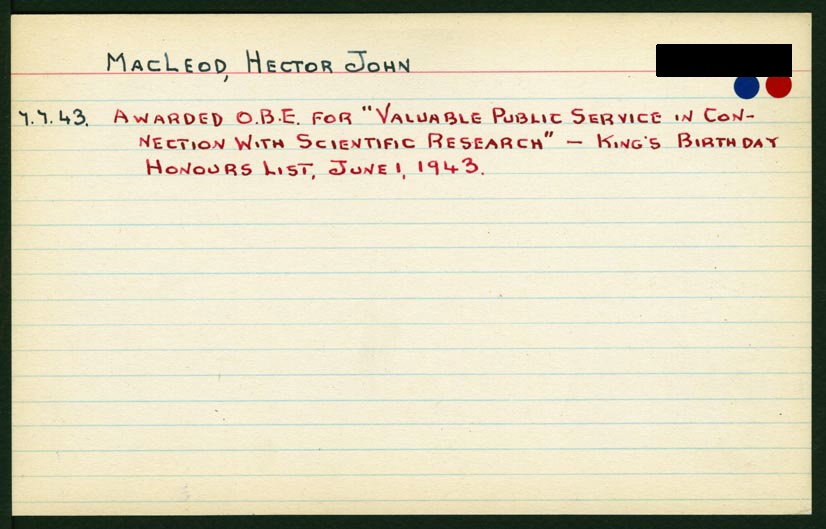 MacLeod, Hector John
7.7.43. Awarded O.B.E. for "Valuable Public Service in Con-
nection With Scientific Research" — King's Birthday
Honours List, June 1, 1943.